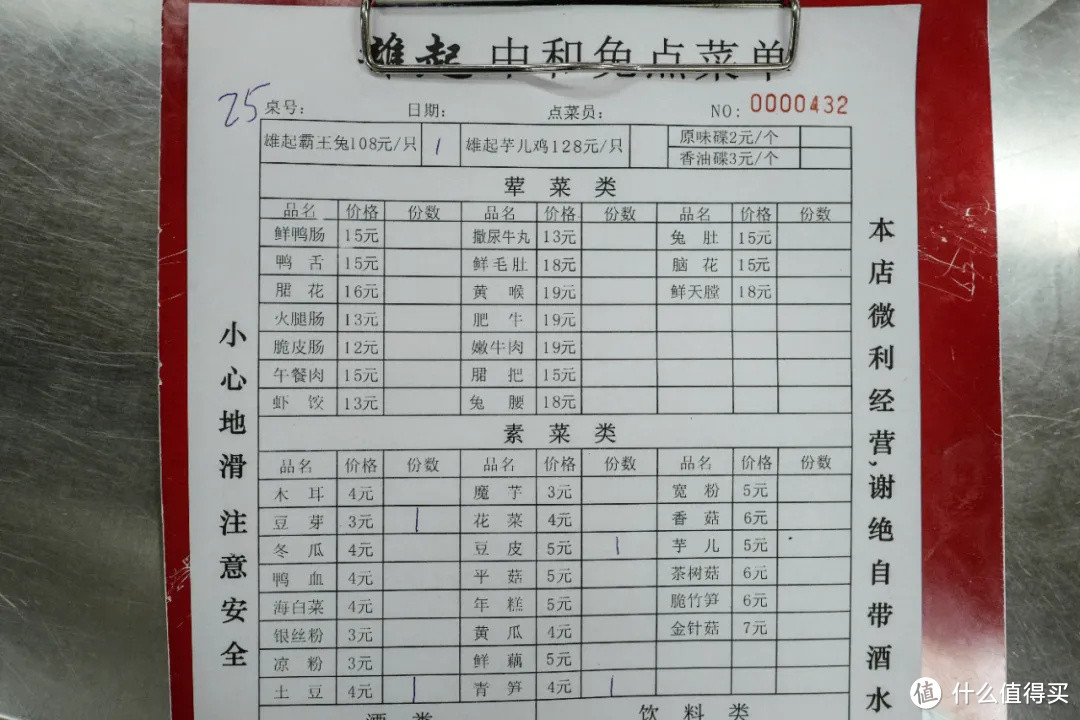 雄起 中和兔点菜单
25 桌号: 日期: 点菜员: NO: 0000432
雄起霸王兔108元/只 1 雄起芋儿鸡128元/只 原味碟2元/个
香油碟3元/个
荤菜类
品名 价格 份数 品名 价格 份数 品名 价格 份数
鲜鸭肠 15元 撒尿牛丸 13元 兔肚 15元
鸭舌 15元 鲜毛肚 18元 脑花 15元
腒花 16元 黄喉 19元 鲜天膛 18元
火腿肠 13元 肥牛 19元
脆皮肠 12元 嫩牛肉 19元
午餐肉 15元 腒把 15元
虾饺 13元 兔腰 18元
素菜类
品名 价格 份数 品名 价格 份数 品名 价格 份数
木耳 4元 魔芋 3元 宽粉 5元
豆芽 3元 1 花菜 4元 香菇 6元
冬瓜 4元 豆皮 5元 1 芋儿 5元
鸭血 4元 平菇 5元 茶树菇 6元
海白菜 4元 年糕 5元 脆竹笋 6元
银丝粉 3元 黄瓜 4元 金针菇 7元
凉粉 3元 鲜藕 5元
土豆 4元 1 青笋 4元 1
酒类 饮料类
小心地滑 注意安全
本店微利经营,谢绝自带酒水
值 什么值得买